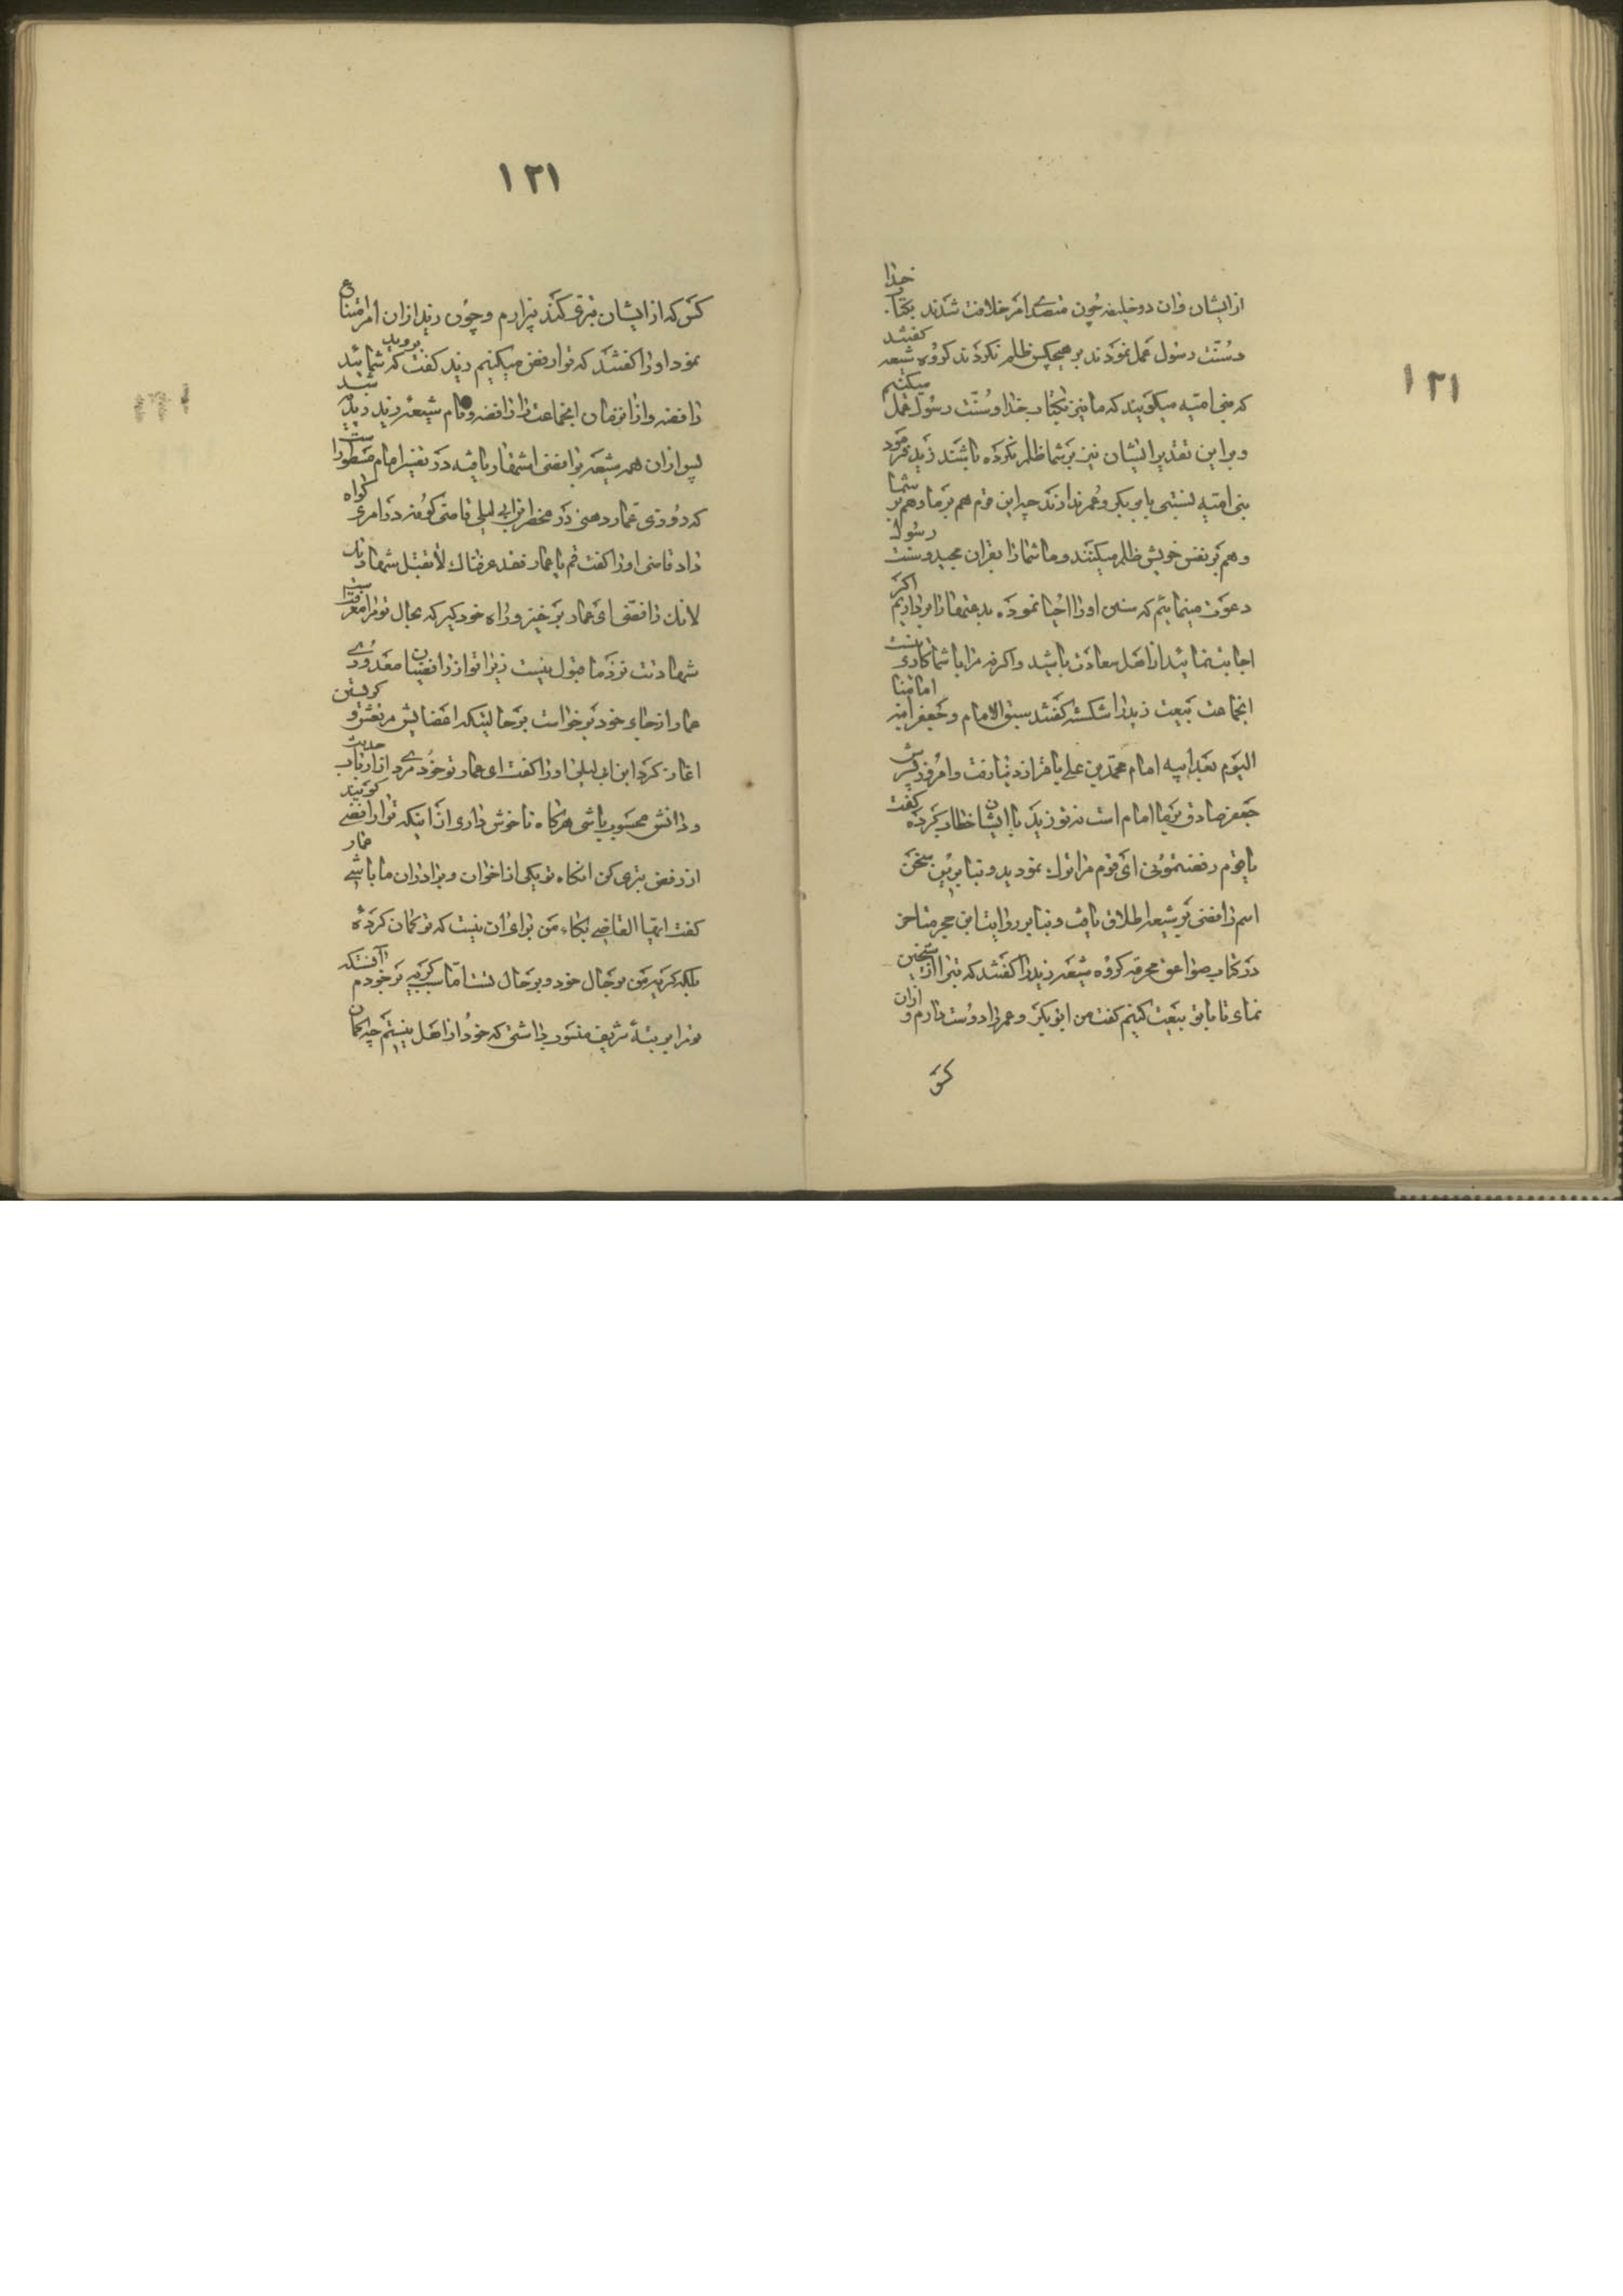 ۱۳۱
از ایشان و ان دو خلیفه چون متصدی امر خلافت شدند بکتاب خدا
و سُنّت رسول عمل نمودند بر هیچکس ظلم نکردند کروه شیعه کفتند
که بنی امیه میکویند که ما نیز بکتاب خدا و سُنّت رسول عمل میکنیم
و بر این تقدیر ایشان نیز بر شما ظلم نکرده باشند زید فرمود
بنی امیه نسبتی بابو بکر و عُمر ندارند چه این قوم هم بر ما و هم بر شما
و هم بر نفس خویش ظلم میکنند و ما شما را بقران مجید و سنت رسول
دعوت مینمائیم که سنن او را احیا نموده بدعتها را براندازیم اکر
اجابت نمائید از اهل سعادت باشید و اکر نه مرا با شما کاری نیست
انجماعت بیعت زید را شکسته کفتند سبق الامام و جعفر امامنا
الیوم بعد ابیه امام محمد بن علی باقر از دنیا رفت و امروز پسرش
جعفر صادق بر ما امام است نه تو زید با ایشان خطاب کرده کفت
یا قوم رفضتمونی ای قوم مرا ترک نمودید و بنا بر این سخن
اسم رافضی بر شیعه اطلاق یافت و بنا بر روایت ابن حجر متاخر
در کتاب صواعق محرقه کروه شیعه زید را کفتند که تبرا از شیخین
نمای تا با تو بیعت کنیم کفت من ابو بکر و عمر را دوست دارم و از ان
کس
۱۳۱
کس که از ایشان تبری کند بیزارم و چون زید از ان امر امتناع
نمود او را کفتند که ترا رفض میکنیم زید کفت که بروید شمائید
رافضه و از انزمان انجماعت را رافضه و نام شیعهٔ زید زیدیه شد
پس از ان همه شیعه برافضی اشتهار یافته در تفسیر امام مسطورست
که روزی عمار دهنی در محضر ابن ابی لیلی قاضی کوفه در امری کواه
داد قاضی او را کفت قم یا عمار فقد عرفناك لا تقبل شهادتك
لانك رافضی ای عمار بر خیز و راه خود کیر که بحال تو مرا معرفتست
شهادتت نزد ما قبول نیست زیرا تو از رافضیان معدودی
عمار از جای خود بر خواست بر حالیتیکه اعضایش مرتعش و کریستن
اغاز کرد ابن ابی لیلی او را کفت ای عمار تو خود مردی از ارباب حدیث
و دانش محسوب باشی هرکاه ناخوش داری از اینکه ترا رافضی کویند
از رفض تبری کن انکاه تو یکی از اخوان و برادران ما باشی عمار
کفت ایها القاضی بکاء من برای ان نیست که تو کمان کردهٔ
بلکه کریه من بر حال خود و بر حال تست اما سبب کریه بر خودم انستکه
مرا بر تبهٔ شریف منسوب داشتی که خود از اهل ان نیستم چه کمان